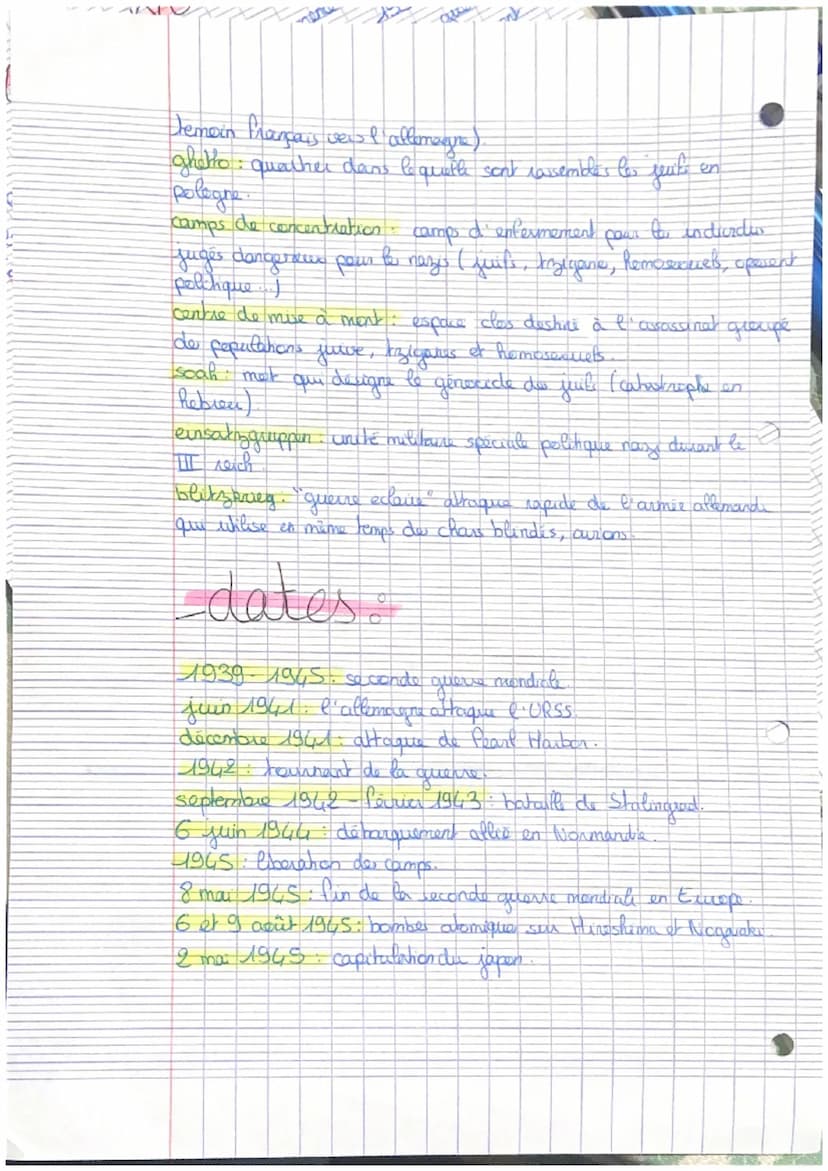 temoin français vers l'allemagne).
ghetto : quathier dans lequelle sont rassemblés les juifs en
pologne.
camps de concentration : camps d'enfermement pour les individus
jugés dangereux pour les nazys (juifs, tzigane, homosexuels, oposent
politique...)
centre de mise à mort : espace clos destiné à l'assassinat groupé
des populations juive, tziganes et homosexuels.
soah : mot qui désigne le génocide des juifs (catastrophe en
hebreu).
einsatzgruppen : unité militaire spéciale politique nazy durant le
III reich.
blitzkrieg : "guerre eclaire" attaque rapide de l'armée allemande
qui utilise en même temps des chars blindés, avions.
_dates :
1939-1945 : seconde guerre mondiale.
juin 1941 : l'allemagne attaque l'URSS.
décembre 1941 : attaque de Pearl Harbor.
1942 : tournant de la guerre.
septembre 1942 - février 1943 : bataille de Stalingrad.
6 juin 1944 : débarquement allié en Normandie.
1945 : liberation des camps.
8 mai 1945 : fin de la seconde guerre mondiale en Europe.
6 et 9 août 1945 : bombes atomique sur Hiroshima et Nagasaki.
2 mai 1945 : capitulation du japon.